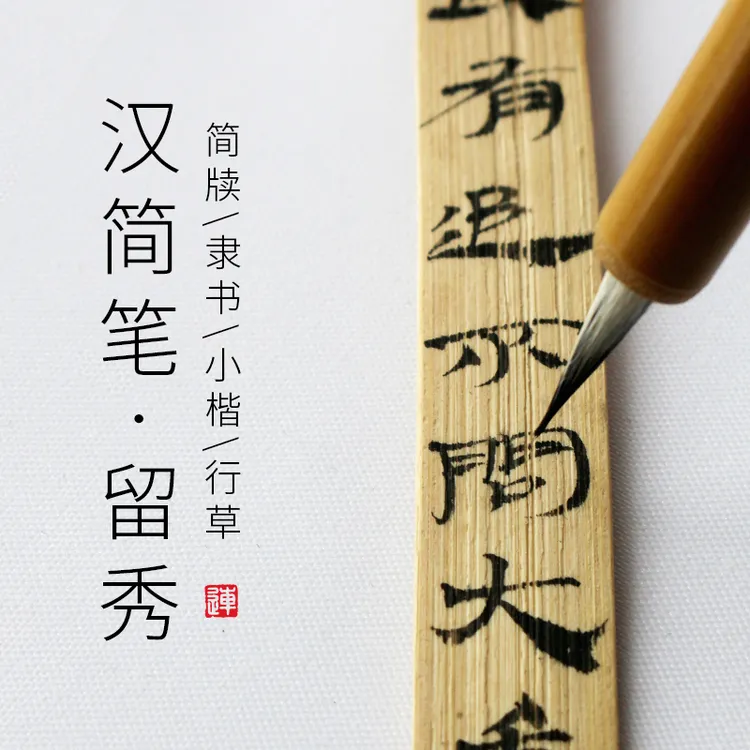 汉简笔·留秀
简牍/隶书/小楷/行草
連
有追不問大